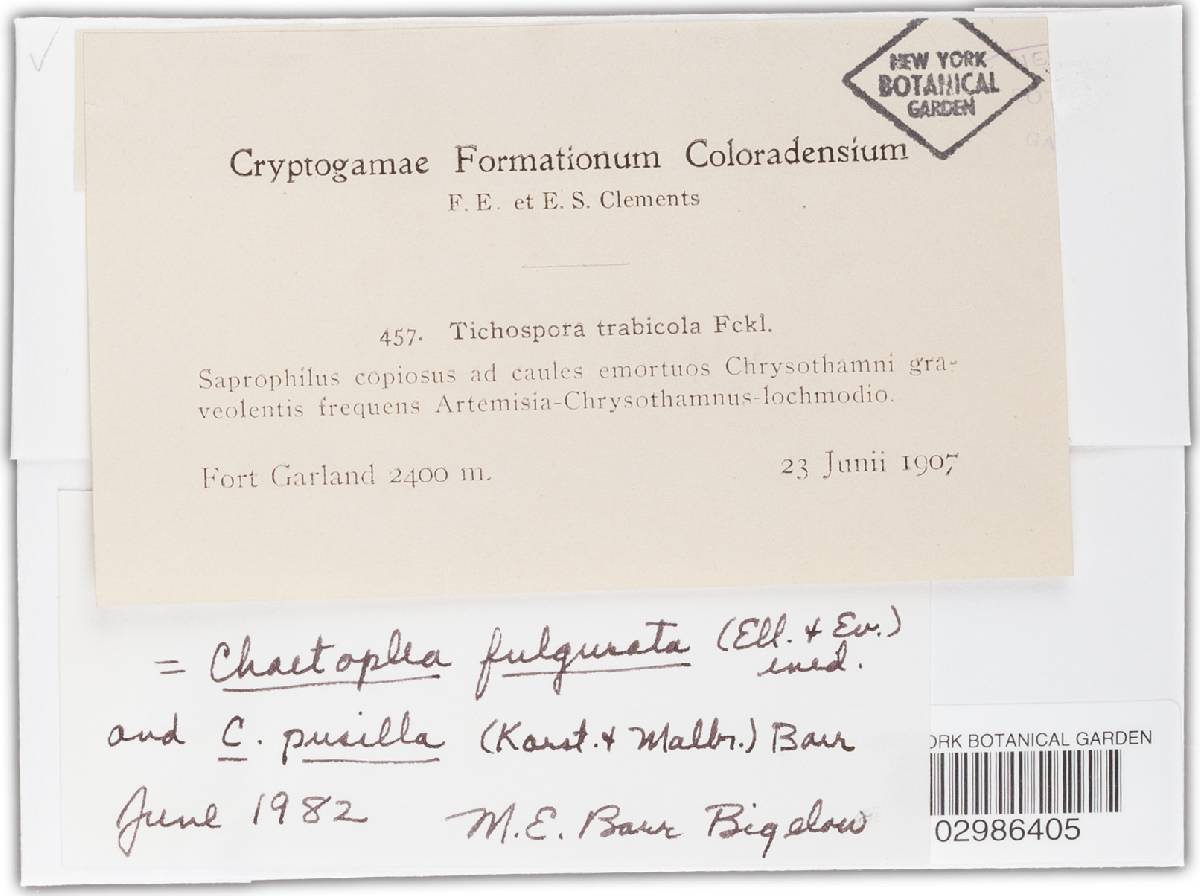 NEW YORK
BOTANICAL
GARDEN
Cryptogamae Formationum Coloradensium
F. E. et E. S. Clements
457. Tichospora trabicola Fckl.
Saprophilus copiosus ad caules emortuos Chrysothamni gra-
veolentis frequens Artemisia-Chrysothamnus-lochmodio.
Fort Garland 2400 m. 23 Junii 1907
= Chaetoplea fulgurata (Ell. & Ev.)
ined.
and C. pusilla (Karst. & Malbr.) Barr
June 1982 M.E. Barr Bigelow
ORK BOTANICAL GARDEN
02986405